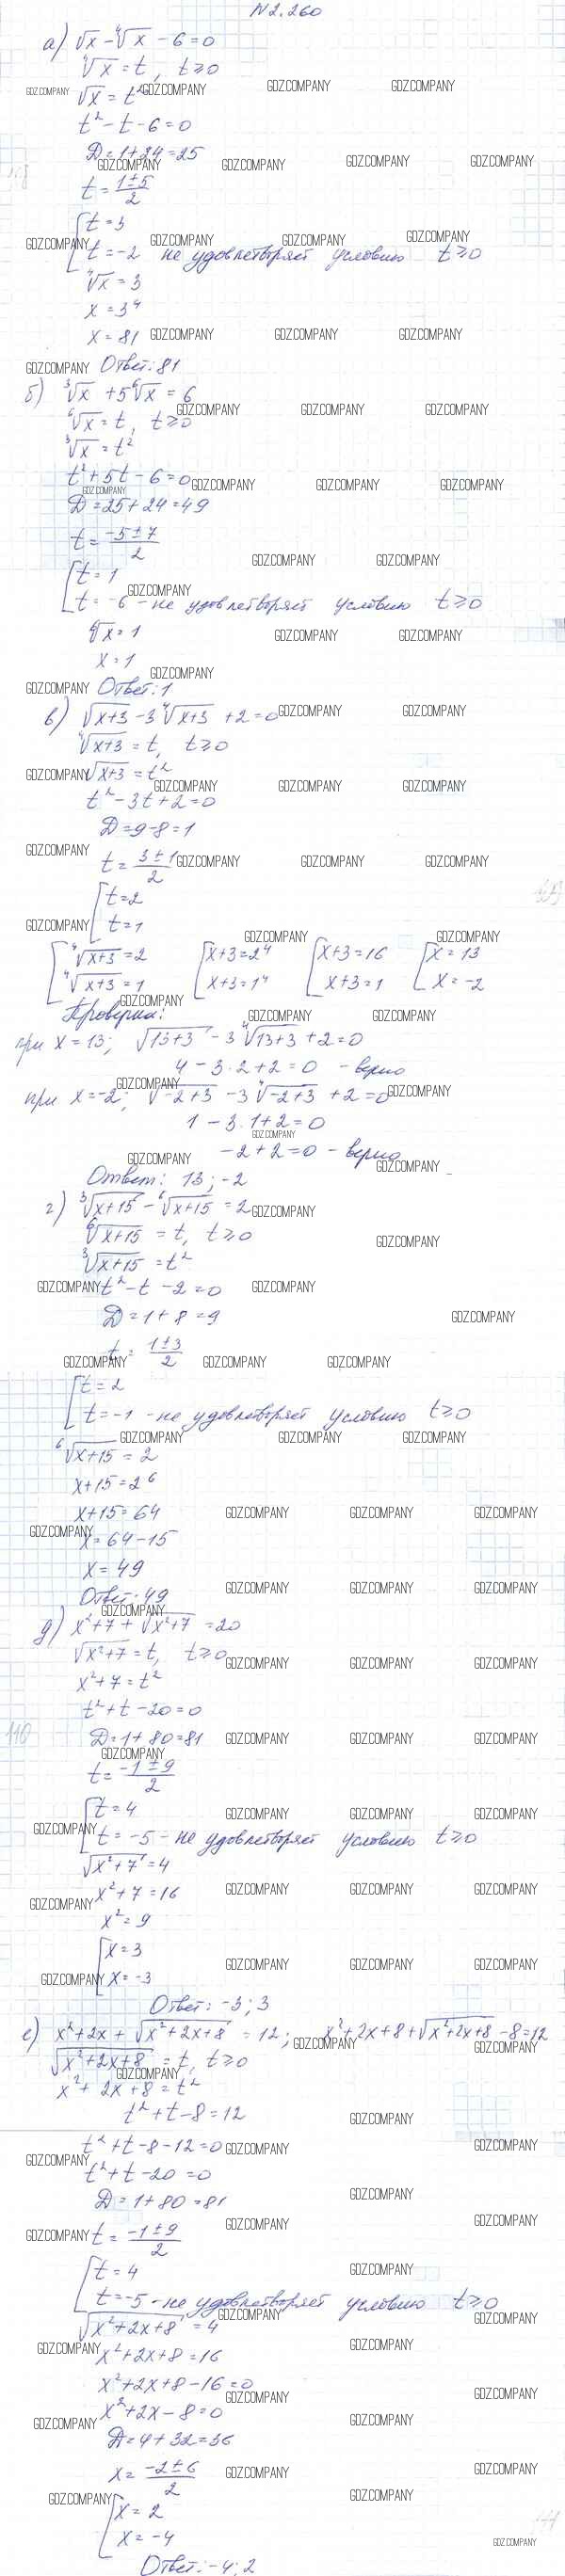 N2.260
а) √x - ⁴√x - 6 = 0
⁴√x = t, t ≥ 0
√x = t²
t² - t - 6 = 0
D = 1 + 24 = 25
t = (1±5)/2
[t = 3
t = -2 не удовлетворяет условию t ≥ 0
⁴√x = 3
x = 3⁴
x = 81
Ответ: 81
б) ³√x + 5⁶√x = 6
⁶√x = t, t ≥ 0
³√x = t²
t² + 5t - 6 = 0
D = 25 + 24 = 49
t = (-5±7)/2
[t = 1
t = -6 - не удовлетворяет условию t ≥ 0
⁶√x = 1
x = 1
Ответ: 1
в) √(x+3) - 3⁴√(x+3) + 2 = 0
⁴√(x+3) = t, t ≥ 0
√(x+3) = t²
t² - 3t + 2 = 0
D = 9 - 8 = 1
t = (3±1)/2
[t = 2
t = 1
[⁴√(x+3) = 2 [x+3 = 2⁴ [x+3 = 16 [x = 13
⁴√(x+3) = 1 x+3 = 1⁴ x+3 = 1 x = -2
Проверка:
при x = 13; √(13+3) - 3⁴√(13+3) + 2 = 0
4 - 3·2 + 2 = 0 - верно
при x = -2; √(-2+3) - 3⁴√(-2+3) + 2 = 0
1 - 3·1 + 2 = 0
-2 + 2 = 0 - верно
Ответ: 13; -2
г) ³√(x+15) - ⁶√(x+15) = 2
⁶√(x+15) = t, t ≥ 0
³√(x+15) = t²
t² - t - 2 = 0
D = 1 + 8 = 9
t = (1±3)/2
[t = 2
t = -1 - не удовлетворяет условию t ≥ 0
⁶√(x+15) = 2
x + 15 = 2⁶
x + 15 = 64
x = 64 - 15
x = 49
Ответ: 49
д) x² + 7 + √(x²+7) = 20
√(x²+7) = t, t ≥ 0
x² + 7 = t²
t² + t - 20 = 0
D = 1 + 80 = 81
t = (-1±9)/2
[t = 4
t = -5 - не удовлетворяет условию t ≥ 0
√(x²+7) = 4
x² + 7 = 16
x² = 9
[x = 3
x = -3
Ответ: -3; 3
е) x² + 2x + √(x²+2x+8) = 12; x² + 2x + 8 + √(x²+2x+8) - 8 = 12
√(x²+2x+8) = t, t ≥ 0
x² + 2x + 8 = t²
t² + t - 8 = 12
t² + t - 8 - 12 = 0
t² + t - 20 = 0
D = 1 + 80 = 81
t = (-1±9)/2
[t = 4
t = -5 - не удовлетворяет условию t ≥ 0
√(x²+2x+8) = 4
x² + 2x + 8 = 16
x² + 2x + 8 - 16 = 0
x² + 2x - 8 = 0
D = 4 + 32 = 36
x = (-2±6)/2
[x = 2
x = -4
Ответ: -4; 2
GDZ.COMPANY